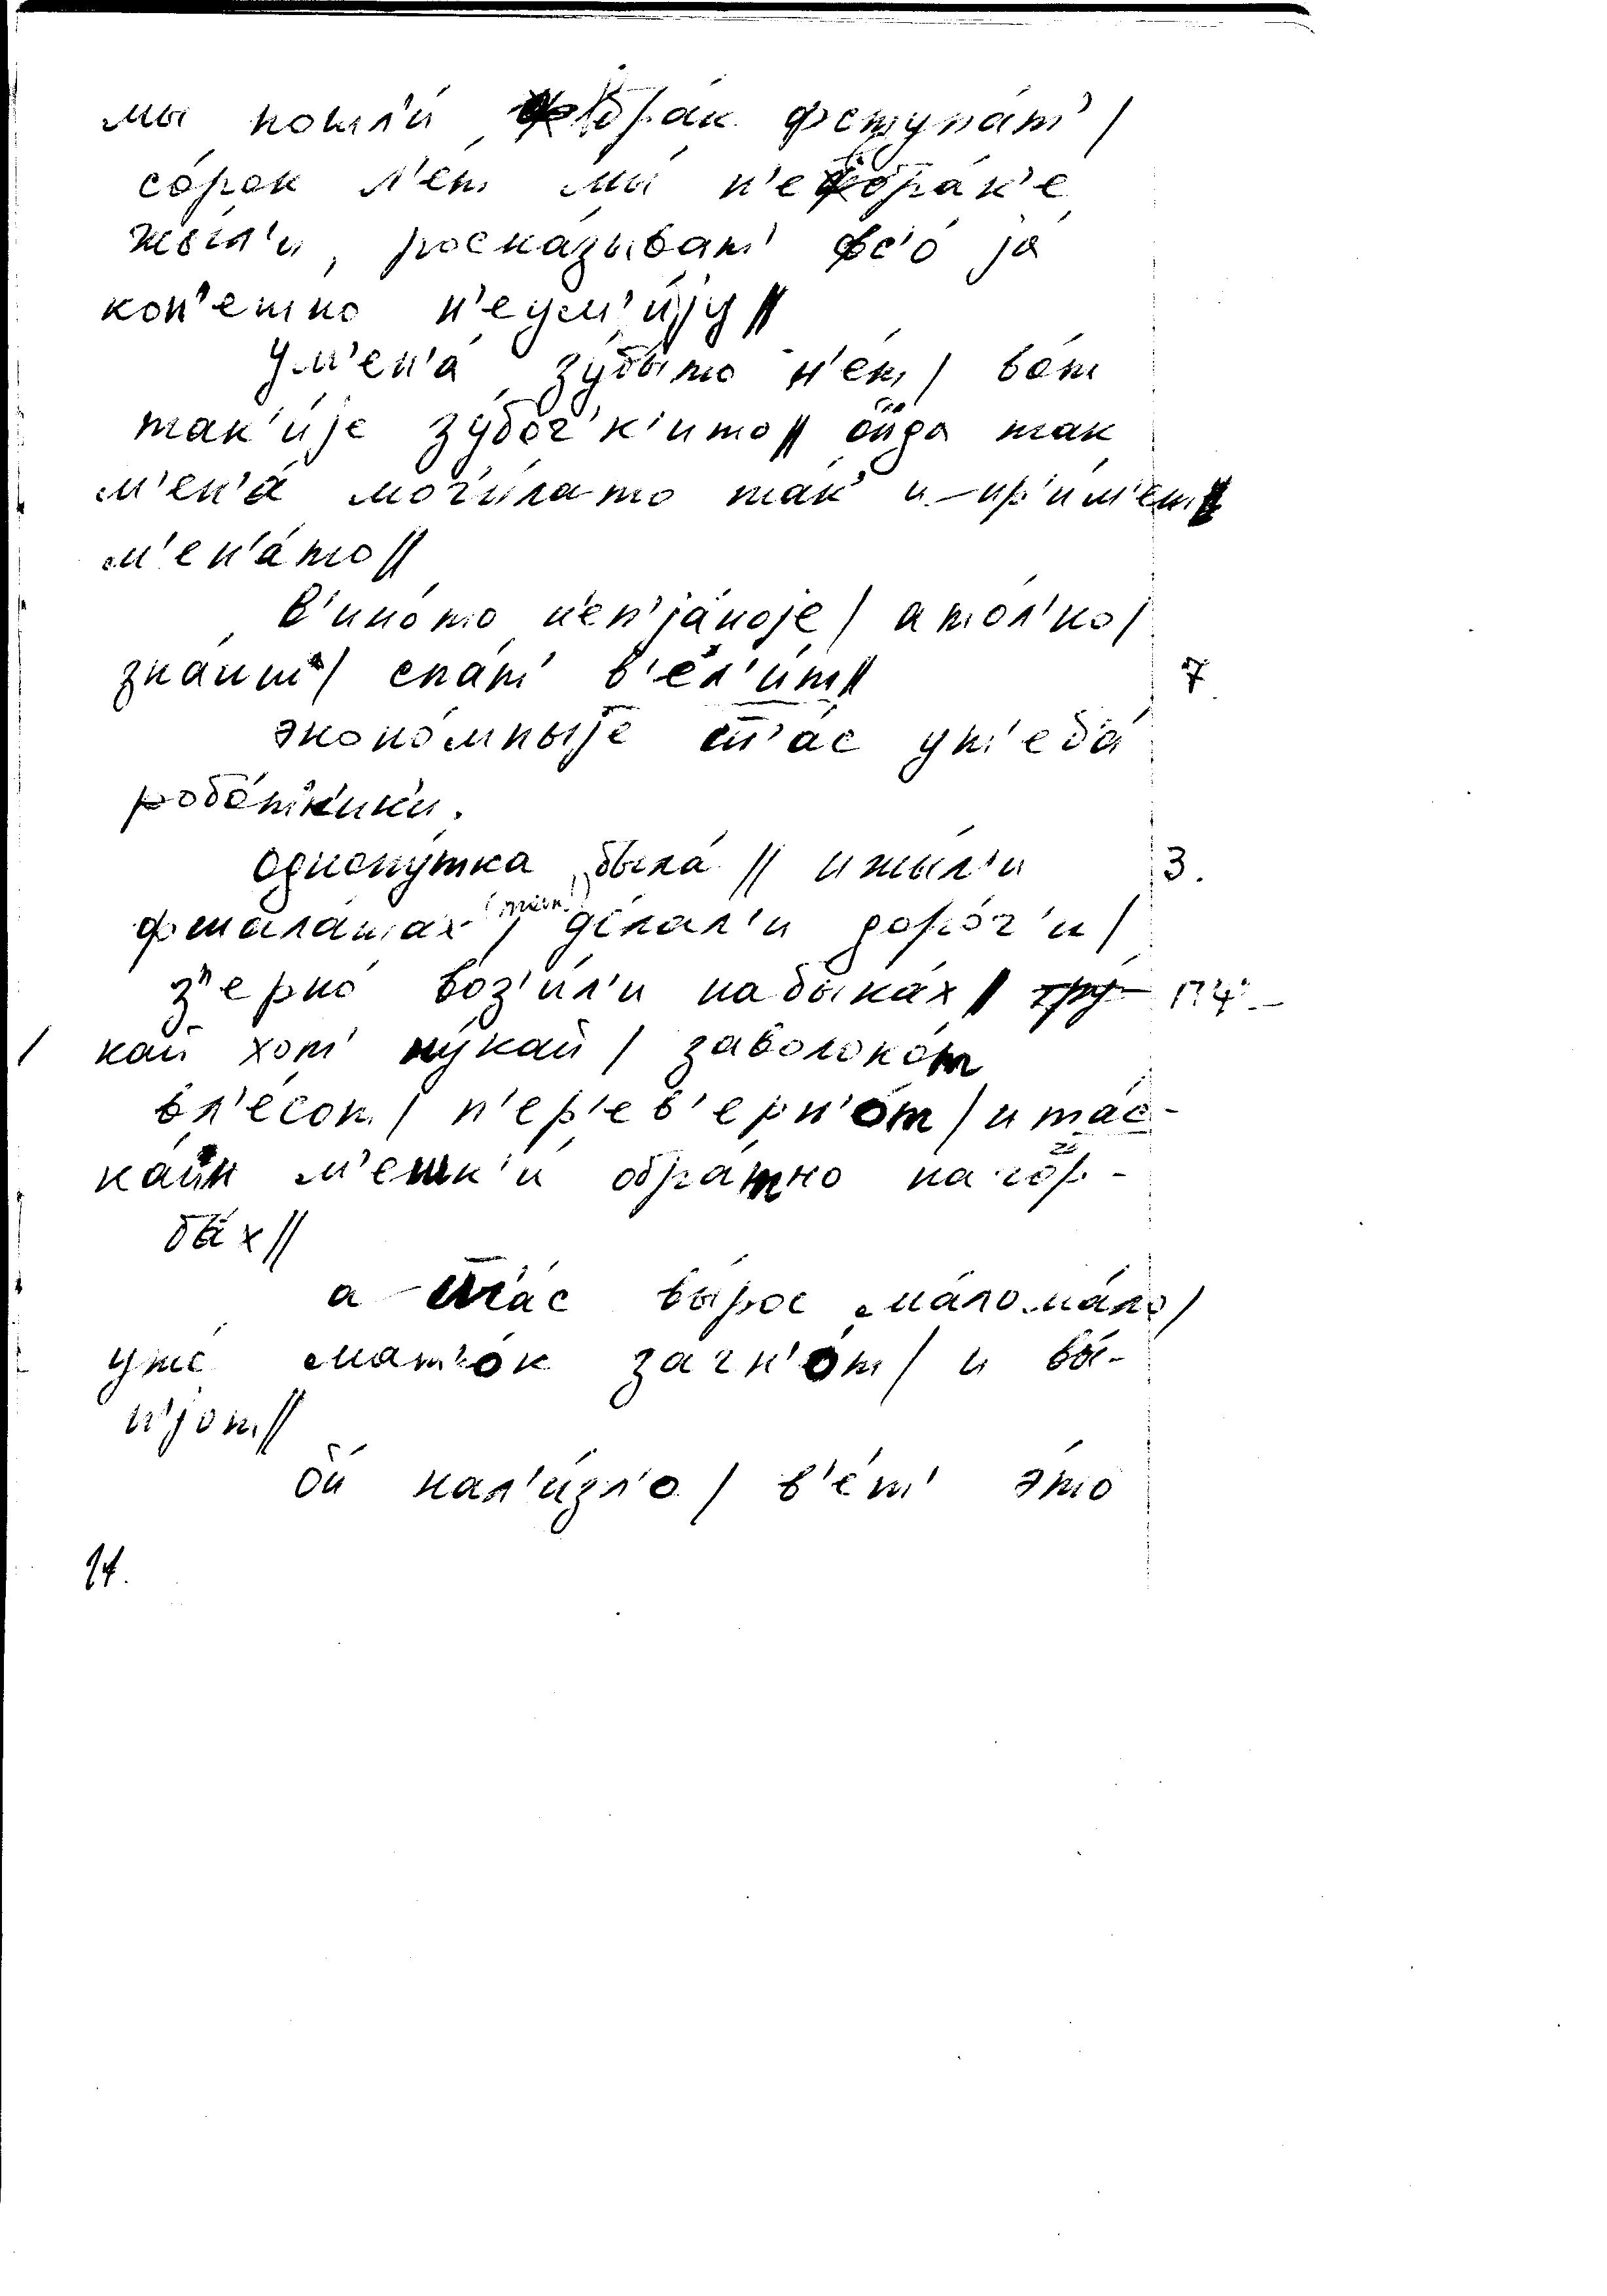 мы пошл'и́ вбра́к фступа́т' /
со́рок л'е́т мы́ н'евбра́к'е
жы́л'и, роска́зыват' фс'о́ jа́
кон'ешно н'еум'и́jу //
ум'ен'а́ зу́быто н'е́т / во́т
так'и́jе зу́боч'к'ито // о́йда так
м'ен'а́ моги́лато так и_пр'и́м'ет
м'ен'а́то //
в'ино́то н'еп'jа́ноjе / а то́л'ко /
зна́иш / спа́т' в'ел'и́т // 7
эконо́мныjе ш'а́с ут'еба́
робо́т'н'ик'и.
однопу́тка была́ // и жы́л'и 3.
фшала́шах / де́лал'и доро́г'и /
з'ерно́ воз'и́л'и на быка́х // ну́-
/ кай хот' ну́кай / заволоко́т
в л'е́сок / п'ер'ев'ерн'о́т / и та́с-
кайи м'ешк'и́ обра́тно на гор-
ба́х //
а ш'а́с вы́рос ма́лома́ло /
уже́ мат'о́к загн'о́т / и вы́-
п'jот //
о́й нал'и́зл'о / в'е́т' э́то
14.